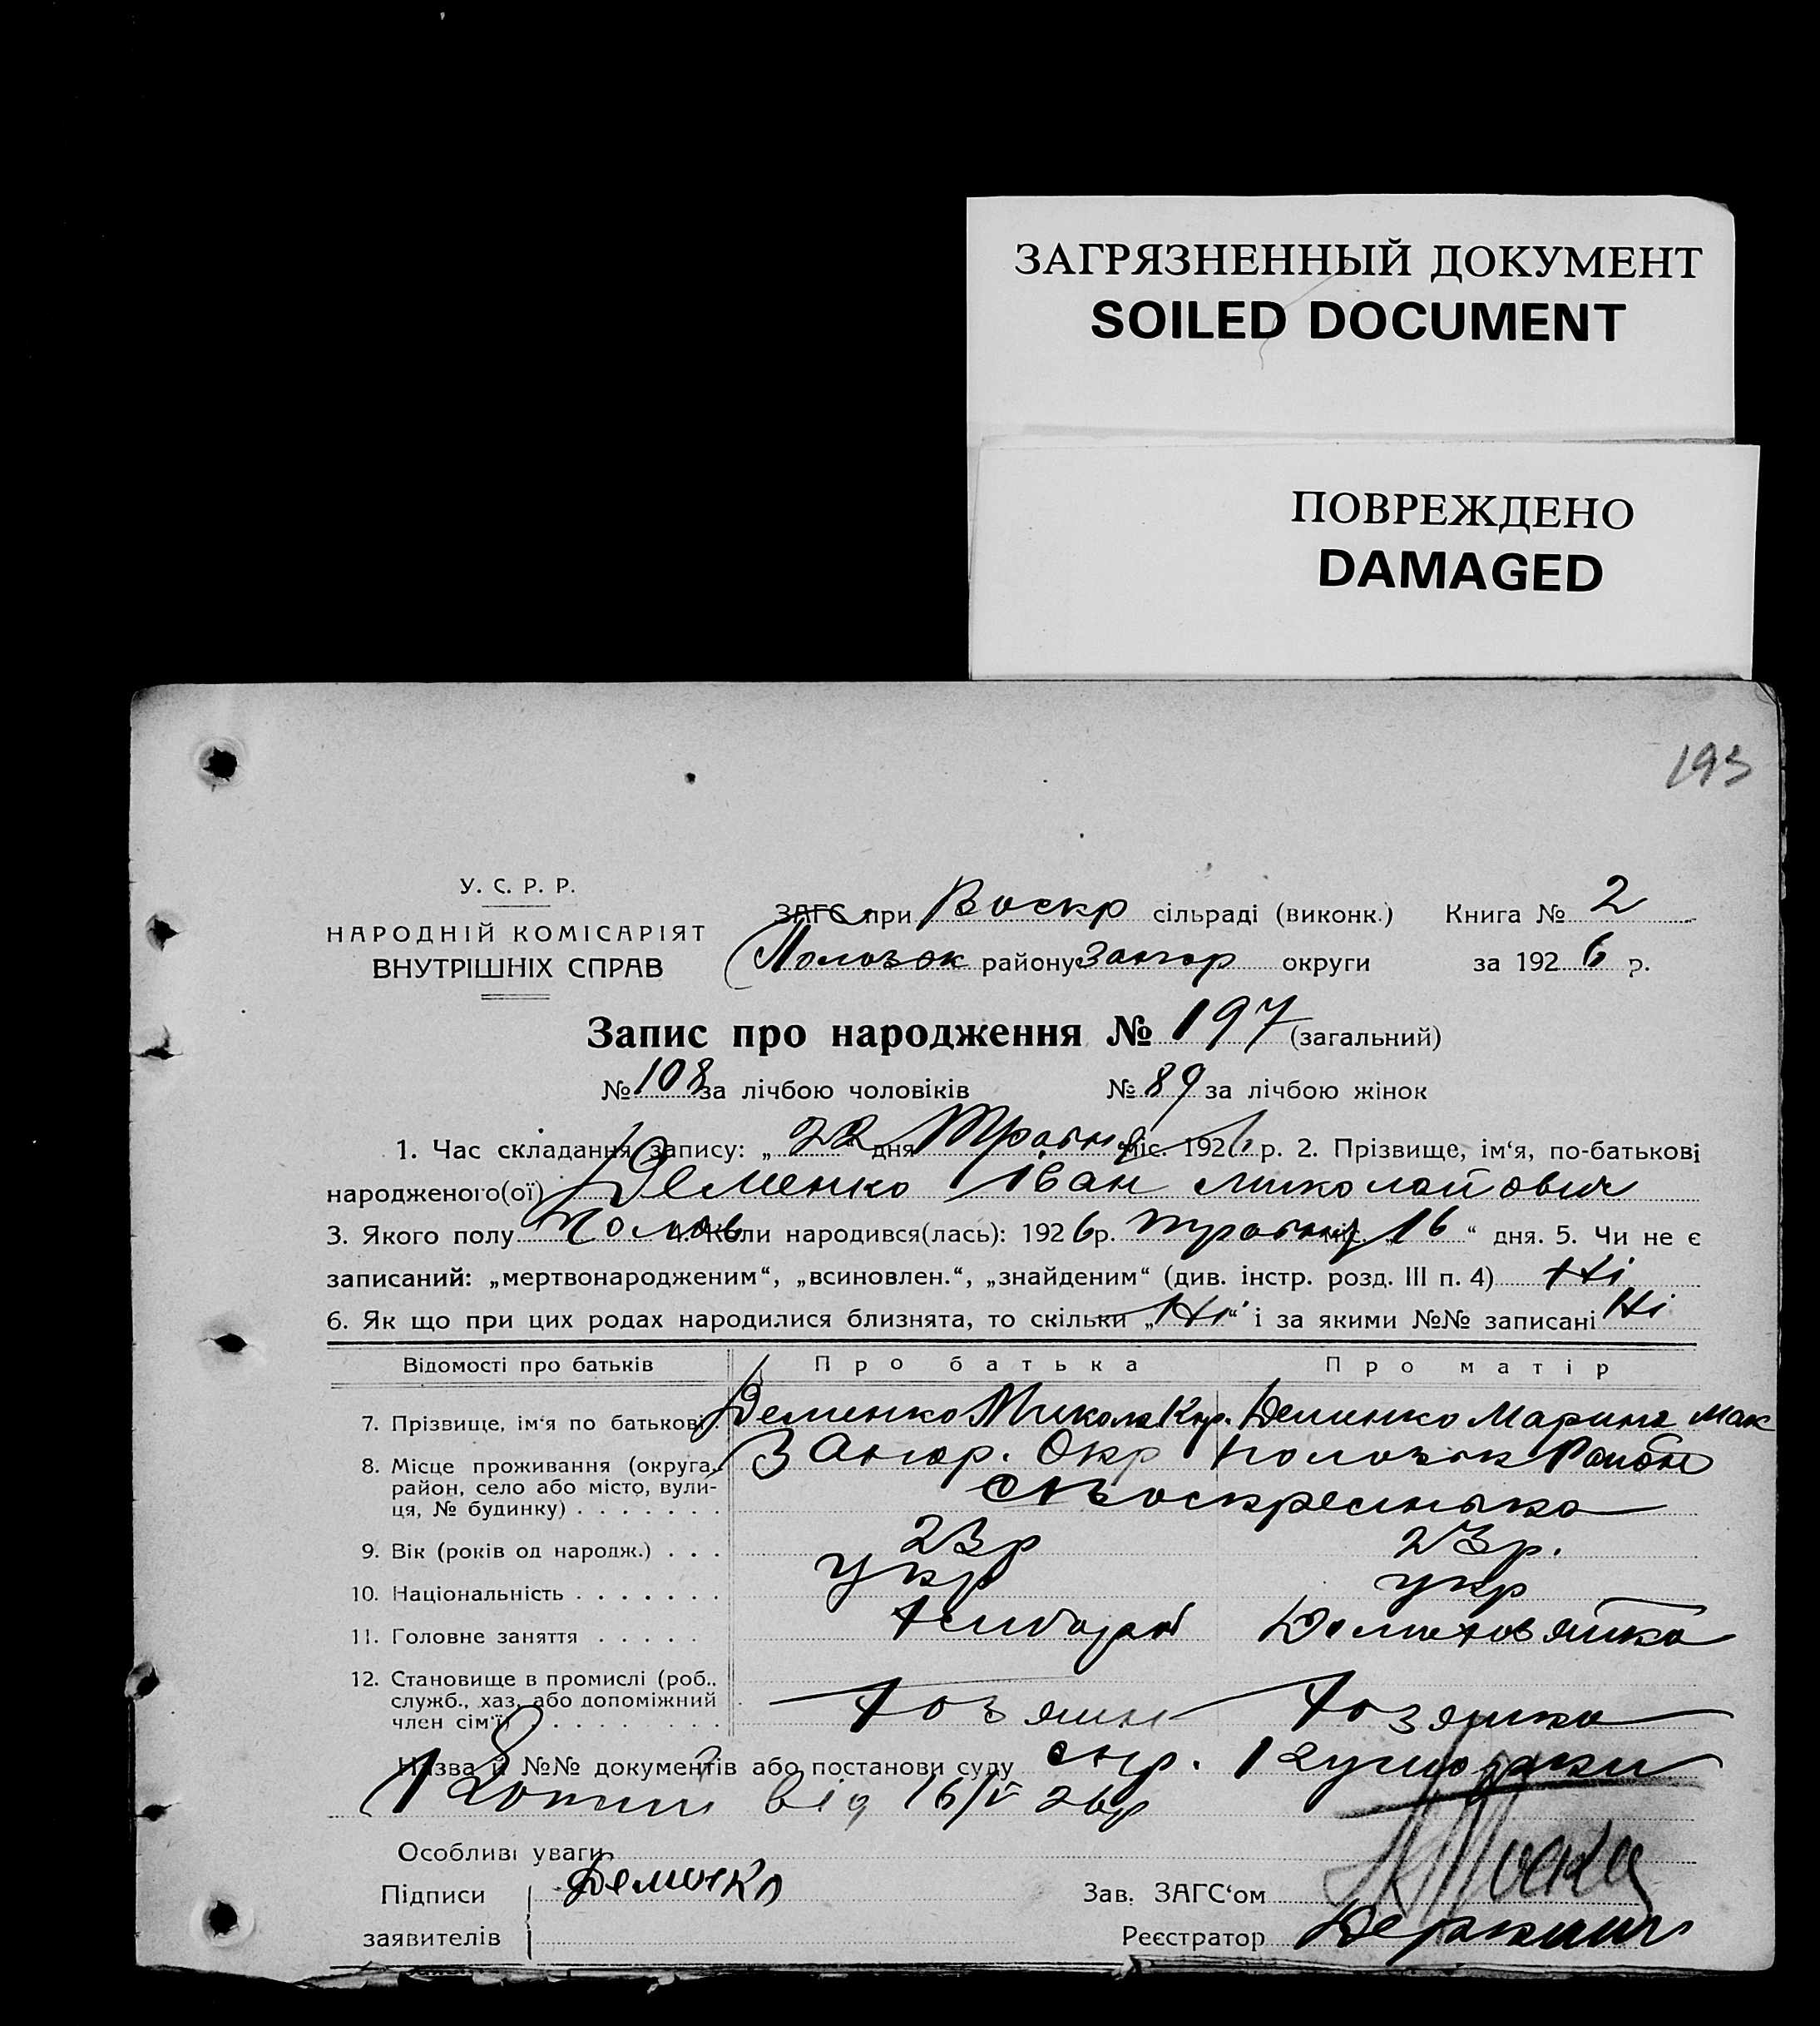 ЗАГРЯЗНЕННЫЙ ДОКУМЕНТ
SOILED DOCUMENT
ПОВРЕЖДЕНО
DAMAGED
193
У. С. Р. Р.
НАРОДНІЙ КОМІСАРІЯТ
ВНУТРІШНІХ СПРАВ
ЗАГС при Воскр сільраді (виконк.) Книга № 2
Полозьк району Запор округи за 1926 р.
Запис про народження № 197 (загальний)
№ 108 за лічбою чоловіків № 89 за лічбою жінок
1. Час складання запису: „ 22 " дня Травня міс. 1926 р. 2. Прізвище, ім'я, по-батькові
народженого(ої) Деменко Іван Миколайович
3. Якого полу Чолов 4. Коли народився(лась): 1926 р. травня міс. „ 16 " дня. 5. Чи не є
записаний: „мертвонародженим", „всиновлен.", „знайденим" (див. інстр. розд. III п. 4) Ні
6. Як що при цих родах народилися близнята, то скільки „ Ні " і за якими №№ записані Ні
Відомості про батьків Про батька Про матір
7. Прізвище, ім'я по батькові Деменко Микола Кир. Деменко Марина Мак
8. Місце проживання (округа, Запор. Окр Полозьк Район
район, село або місто, вули- с Воскресенька
ця, № будинку)
9. Вік (років од народж.) 23р 23р.
10. Національність укр укр
11. Головне заняття Хлибороб Домохозяйка
12. Становище в промислі (роб.,
служб., хаз. або допоміжний Хозяин Хозяйка
член сім'ї)
Назва й №№ документів або постанови суду спр.
від 16/V 26р
Особливі уваги
Підписи Деменко Зав. ЗАГС'ом
заявителів Реєстратор